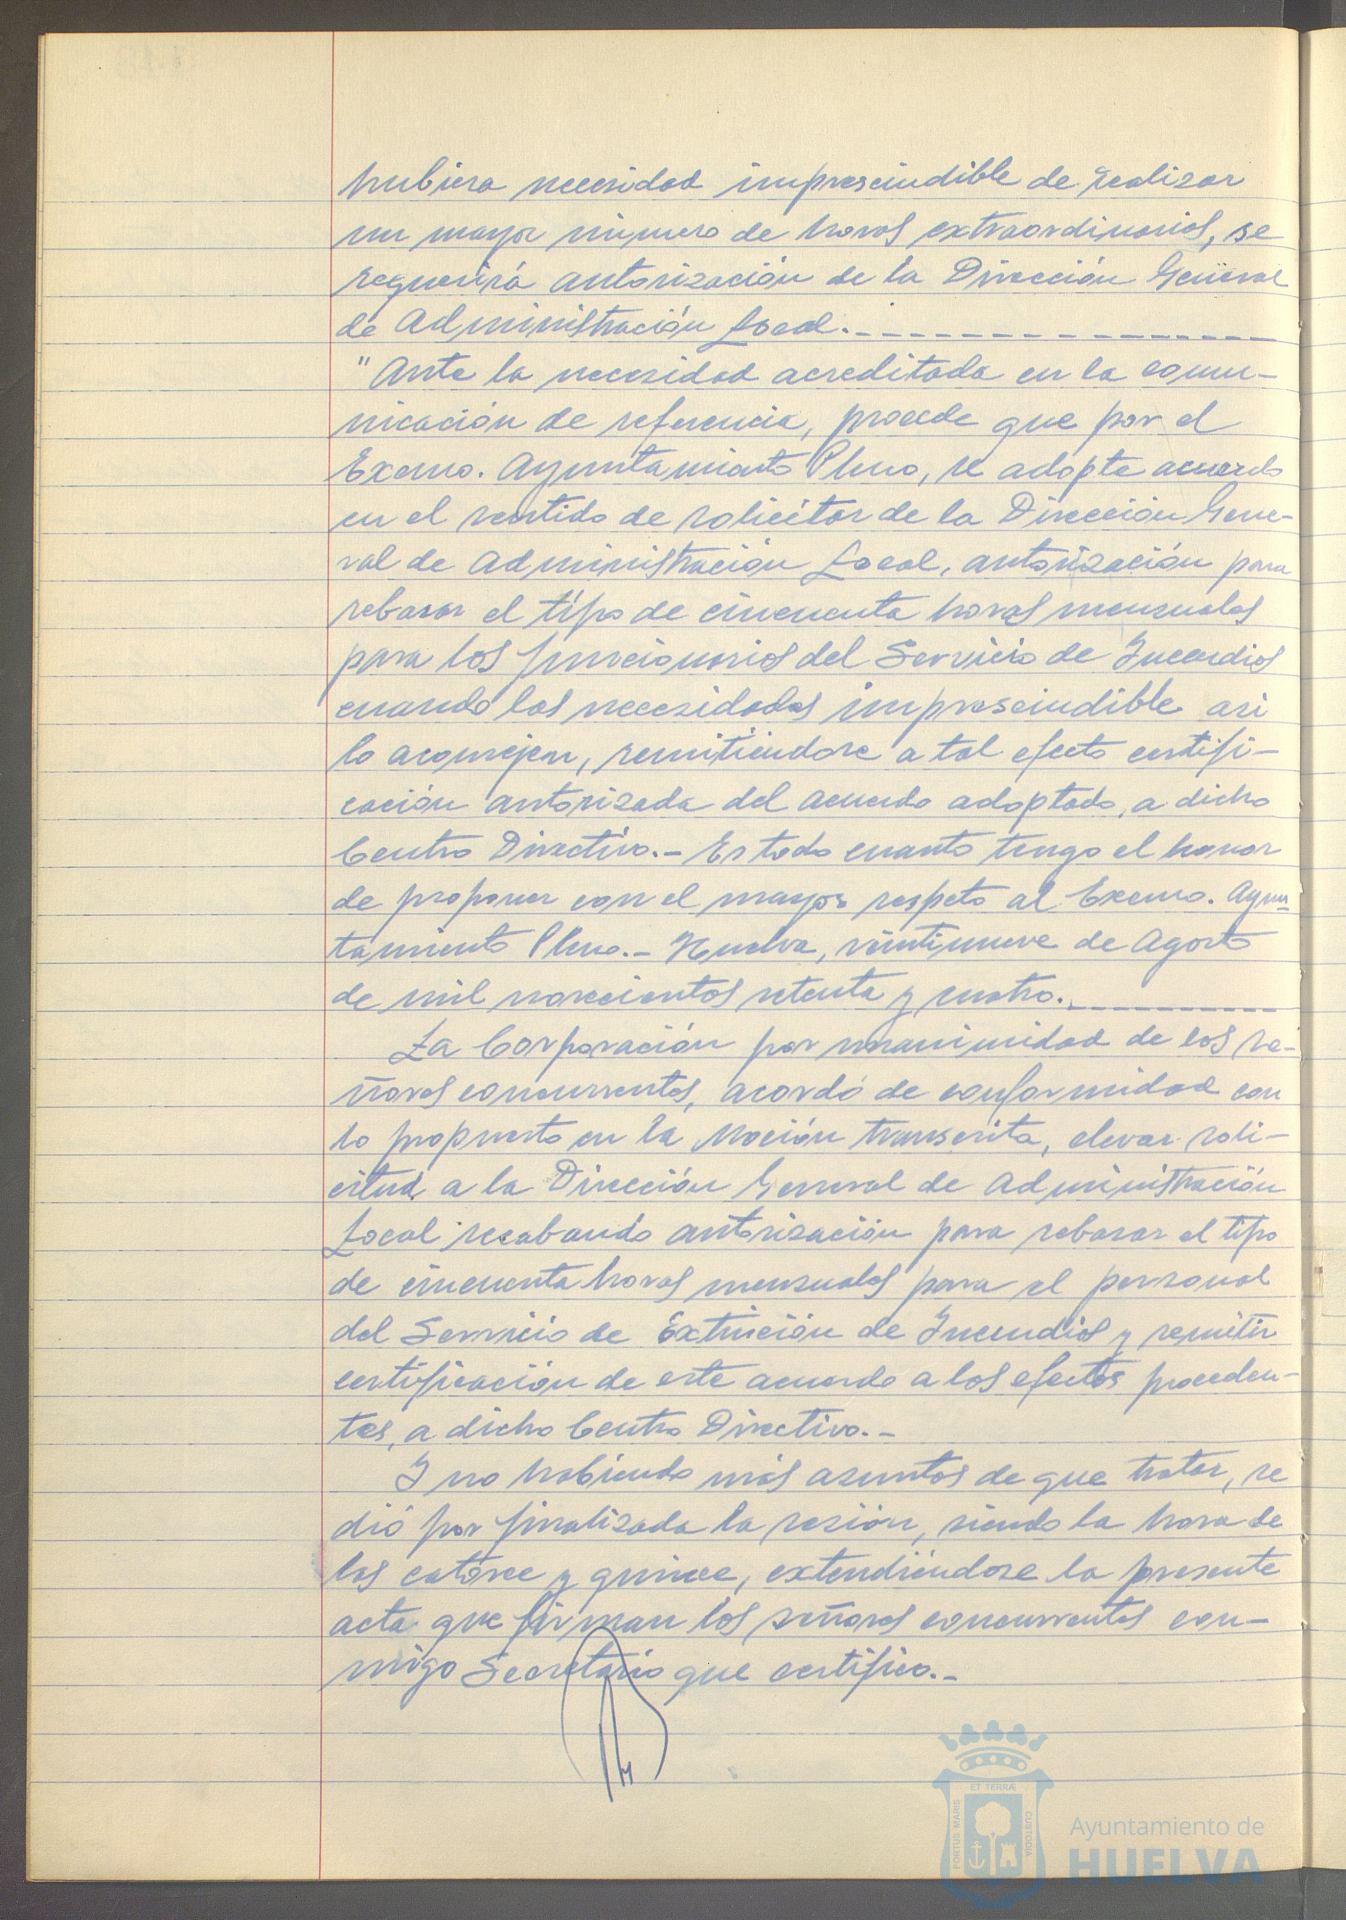 hubiera necesidad imprescindible de realizar
un mayor número de horas extraordinarias, se
requerirá autorización de la Dirección General
de Administración Local.-
"Ante la necesidad acreditada en la comu-
nicación de referencia, procede que por el
Excmo. Ayuntamiento Pleno, se adopte acuerdo
en el sentido de solicitar de la Dirección Gene-
ral de Administración Local, autorización para
rebasar el tipo de cincuenta horas mensuales
para los funcionarios del Servicio de Incendios
cuando las necesidades imprescindible asi
lo aconsejen, remitiendose a tal efecto certifi-
cación autorizada del acuerdo adoptado, a dicho
Centro Directivo.- Es todo cuanto tengo el honor
de proponer con el mayor respeto al Excmo. Ayun-
tamiento Pleno.- Huelva, veintinueve de Agosto
de mil novecientos setenta y cuatro.-
La Corporación por unanimidad de los se-
ñores concurrentes, acordó de conformidad con
lo propuesto en la Moción transcrita, elevar soli-
citud a la Dirección General de Administración
Local recabando autorización para rebasar el tipo
de cincuenta horas mensuales para el personal
del Servicio de Extinción de Incendios y remitir
certificación de este acuerdo a los efectos proceden-
tes, a dicho Centro Directivo.-
Y no habiendo más asuntos de que tratar, se
dió por finalizada la sesión, siendo la hora de
las catorce y quince, extendiéndose la presente
acta que firman los señores concurrentes con-
migo Secretario que certifico.-
ET TERRÆ
PORTUS MARIS
CUSTODIA
Ayuntamiento de
HUELVA